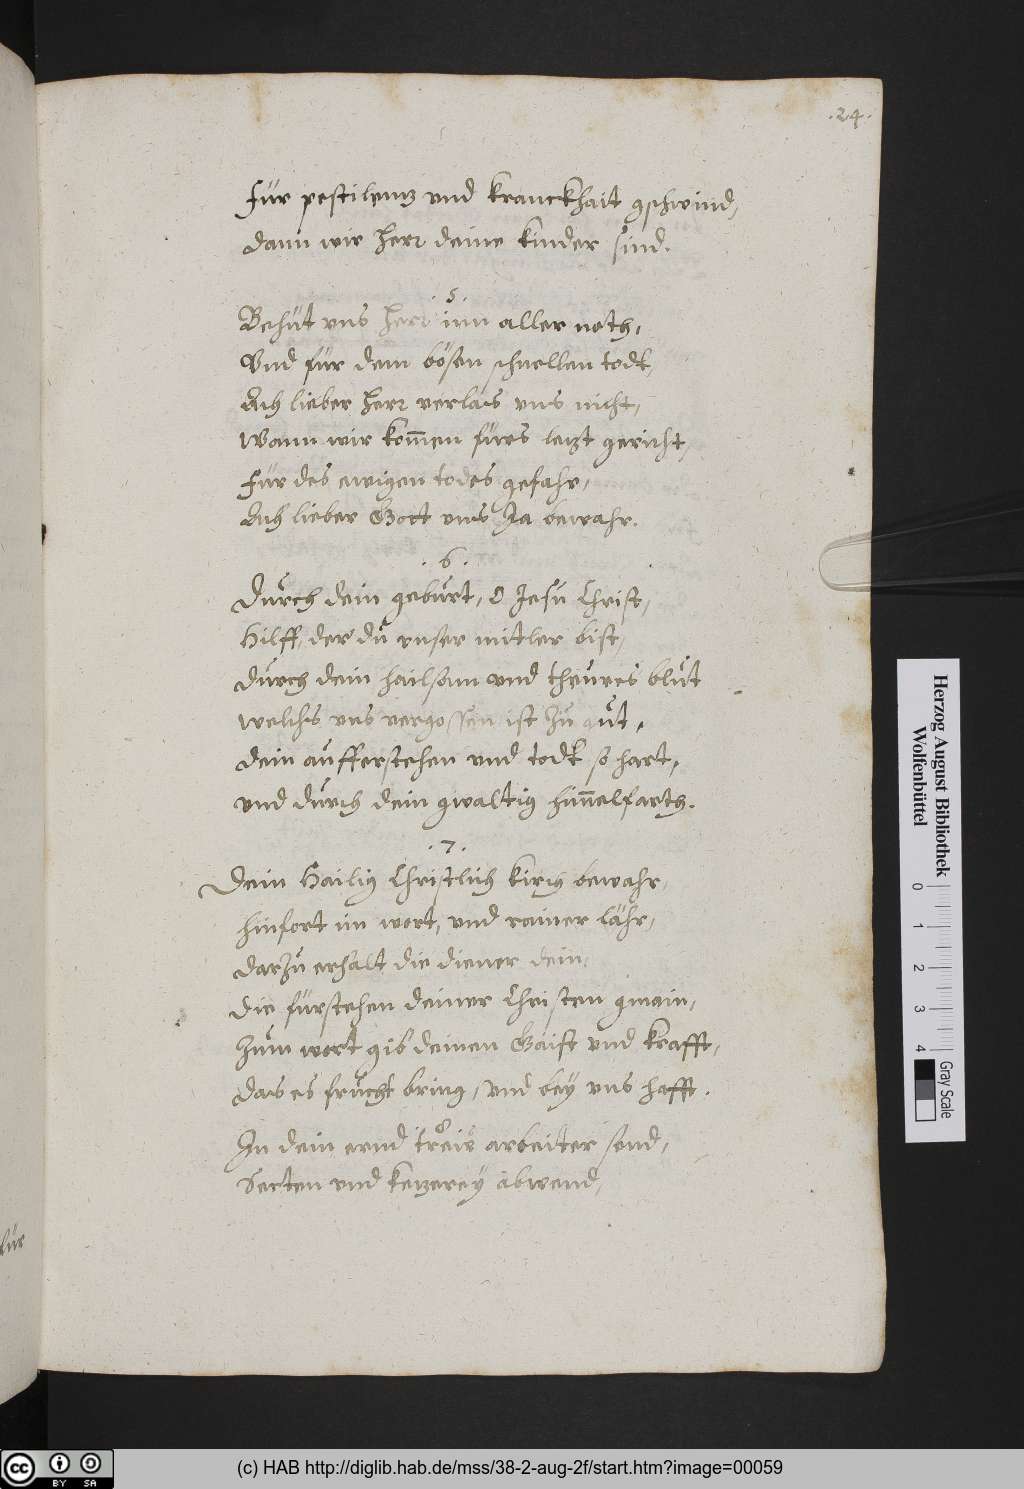 .24.
Für pestilentz vnd kranckhait gschwind,
dann wir herr deine kinder sind.
.5.
Behüt vns herr inn aller noth,
Vnd für dem bösen schnellen todt,
Ach lieber herr verlas vns nicht,
Wann wir kom̄en fürs letzt gericht,
Für des ewigen todes gefahr,
Ach lieber Gott vns Ja bewahr.
.6.
Durch dein geburt, O Jesu Christ,
Hilff, der du vnser mitler bist,
durch dein hailsam vnd theures blut
welchs vns vergossen ist zu gut,
dein aufferstehen vnd todt so hart,
vnd durch dein gwaltig him̄elfarth.
.7.
Dein Hailig Christlich kirch bewahr,
hinfort im wort, vnd rainer lähr,
darzu erhalt die diener dein,
die fürstehen deiner Christen gmain,
Zum wort gib deinen Gaist vnd krafft,
das es frucht bring, vnd bey vns hafft.
In dein ernd arbeiter send,
Secten vnd ketzerey abwend,
für
Herzog August Bibliothek
Wolfenbüttel
0 1 2 3 4
Gray Scale
cc BY SA
(c) HAB http://diglib.hab.de/mss/38-2-aug-2f/start.htm?image=00059